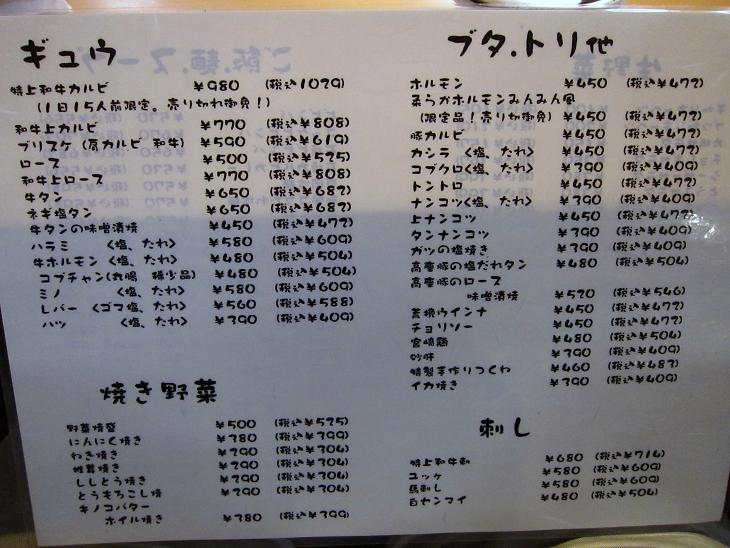 ギュウ
特上和牛カルビ ￥980 (税込1029)
(1日15人前限定。売り切れ御免！)
和牛上カルビ ￥770 (税込￥808)
ブリスケ (肩カルビ 和牛) ￥590 (税込￥619)
ロース ￥500 (税込￥525)
和牛上ロース ￥770 (税込￥808)
牛タン ￥650 (税込￥682)
ネギ塩タン ￥650 (税込￥682)
牛タンの味噌漬焼 ￥450 (税込￥472)
ハラミ <塩、たれ> ￥580 (税込￥609)
牛ホルモン <塩、たれ> ￥480 (税込￥504)
コプチャン(丸腸 稀少品) ￥480 (税込￥504)
ミノ <塩、たれ> ￥580 (税込￥609)
レバー <ゴマ塩、たれ> ￥560 (税込￥588)
ハツ <塩、たれ> ￥390 (税込￥409)
焼き野菜
野菜焼盛 ￥500 (税込￥525)
にんにく焼き ￥380 (税込￥399)
ねぎ焼き ￥290 (税込￥304)
椎茸焼き ￥290 (税込￥304)
ししとう焼き ￥290 (税込￥304)
とうもろこし焼 ￥290 (税込￥304)
キノコバター
ホイル焼き ￥380 (税込￥399)
ブタ.トリ他
ホルモン ￥450 (税込￥472)
柔らかホルモンみんみん風
(限定品！売り切御免) ￥450 (税込￥472)
豚カルビ ￥450 (税込￥472)
カシラ <塩、たれ> ￥450 (税込￥472)
コブクロ<塩、たれ> ￥390 (税込￥409)
トントロ ￥450 (税込￥472)
ナンコツ<塩、たれ> ￥390 (税込￥409)
上ナンコツ ￥450 (税込￥472)
タンナンコツ ￥390 (税込￥409)
ガツの塩焼き ￥390 (税込￥409)
高座豚の塩だれタン ￥480 (税込￥504)
高座豚のロース
味噌漬焼 ￥520 (税込￥546)
荒挽ウインナ ￥450 (税込￥472)
チョリソー ￥450 (税込￥472)
宮崎鶏 ￥480 (税込￥504)
砂肝 ￥390 (税込￥409)
特製手作りつくね ￥460 (税込￥483)
イカ焼き ￥390 (税込￥409)
刺し
特上和牛刺 ￥680 (税込￥714)
ユッケ ￥580 (税込￥609)
馬刺し ￥580 (税込￥609)
白センマイ ￥480 (税込￥504)